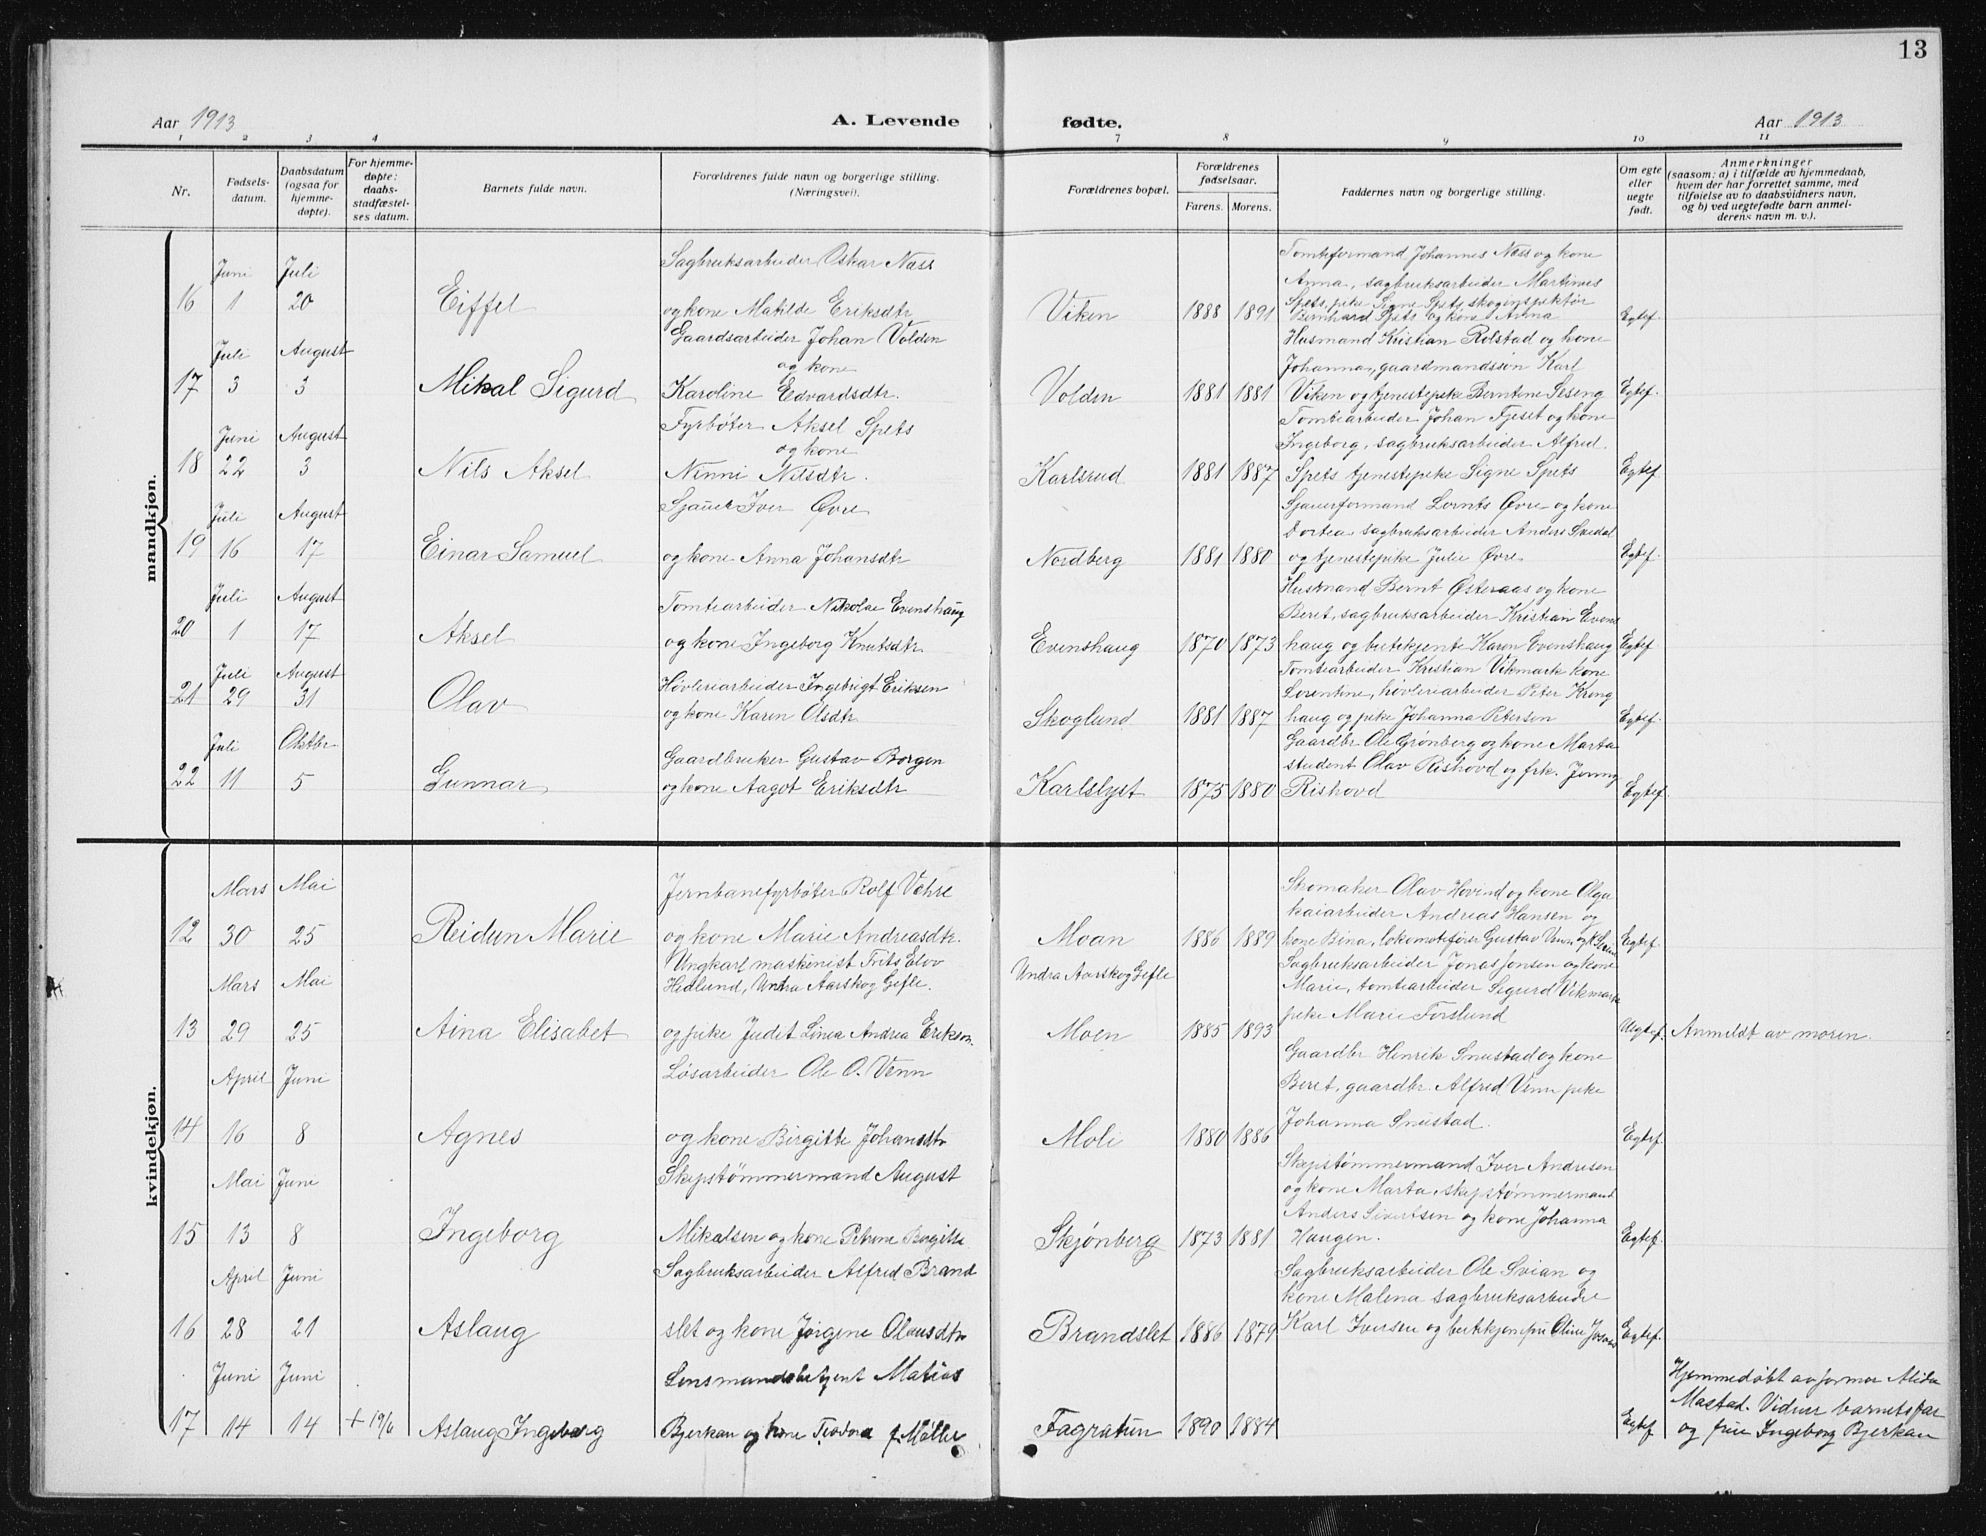 13
Aar 1913 A. Levende fødte. Aar 1913
1 2 3 4 7 8 9 10 11
Nr. Fødsels-datum. Daabsdatum (ogsaa for hjemme-døpte). For hjemme-døpte: daabs-stadfæstel-ses datum. Barnets fulde navn. Forældrenes fulde navn og borgerlige stilling. (Næringsvei). Forældrenes bopæl. Forældrenes fødselsaar. Farens. Morens. Faddernes navn og borgerlige stilling. Om egte eller uegte født. Anmerkninger (saasom: a) i tilfælde av hjemmedaab, hvem der har forrettet samme, med tilføielse av to daabsvidners navn, og b) ved uegtefødte barn anmel-derens navn m. v.).
mandkjøn.
Sagbruksarbeider Oskar Næss Tomteformand Johannes Næss og kone
Juni Juli Anna, sagbruksarbeider Martinus
16 1 20 Eiffel og kone Matilde Eriksdtr Viken 1888 1891 Spets, pike Signe Spets, skoginspektør Bernhard Spets og kone Anna Egtef.
Juli August Gaardsarbeider Johan Volden Husmand Kristian Rolstad og kone
og kone Johanna, gaardmandssøn Karl
17 3 3 Mikal Sigurd Karoline Edvardsdtr. Volden 1881 1881 Viken og tjenestepike Berntine Seseng Egtef.
Juni August Fyrbøter Aksel Spets Tomtearbeider Johan Fjeset og kone
og kone Ingeborg, sagbruksarbeider Alfred
18 22 3 Nils Aksel Ninni Nilsdtr. Karlsrud 1881 1887 Spets tjenestepike Signe Spets Egtef
Juli August Sjauer Iver Øvre Sjauerformand Lornts Øvre og kone
Dortea sagbruksarbeider Anders
19 16 17 Einar Samuel og kone Anna Johansdtr Nordberg 1881 1880 og tjenestepike Julie Øvre Egtef.
Juli August Tomtearbeider Nikolai Evenshaug Husmand Bernt Østeraas og kone
Beret, sagbruksarbeider Kristian Evens
20 1 17 Aksel og kone Ingeborg Knutsdtr. Evenshaug 1870 1873 haug og butikjente Karen Evenshaug Egtef.
Juli August Høvleriarbeider Ingebrigt Eriksen Tomtearbeider Kristian Vikmark kone
21 29 31 Olav og kone Karen Olsdtr Skoglund 1881 1887 Lorentine, høvleriarbeider Peter Krog
haug og pike Johanna Peterson Egtef.
Juli Oktbr. Gaardbruker Gustav Borgen Gaardbr. Ole Grønberg og kone Marta
student Olav Rishovd og frk. Jenny
22 11 5 Gunnar og kone Aagot Eriksdtr Karlslyst 1875 1880 Rishovd Egtef.
kvindekjøn.
Mars Mai Jernbanefyrbøter Rolf Skomaker Olav Hovind og kone Olga
kaiarbeider Andreas Hansen og
12 30 25 Reidun Marie og kone Marie Andreasdtr. Moan 1886 1889 kone Bina, lokomotefører Gustav Egtef.
Mars Mai Ungkarl maskinist Frits Elov Undra Aarskog Gefle Sagbruksarbeider Jonas Jonsen og kone
Hedlund, Undra Aarskog Gefle. Marie, tomtearbeider Sigurd Vikmark
13 29 25 Aina Elisabet og pike Judet Linea Andrea Erikson. Moen 1885 1893 pike Marie Forslund Uegtef. Anmeldt av moren.
April Juni Løsarbeider Ole O. Venn Gaardbr Henrik Snustad og kone
Beret, gaardbr. Alfred Venn pike
14 16 8 Agnes og kone Birgitte Johansdtr Moli 1880 1886 Johanna Snustad. Egtef.
Mai Juni Skipstømmermand August Skipstømmermand Iver Andresen
og kone Marta, skipstømmermand
15 13 8 Ingeborg Mikalsen og kone Petrine Birgitte Skjønberg 1873 1881 Anders Sivertsen og kone Johanna
Haugen. Egtef.
April Juni Sagbruksarbeider Alfred Brand Sagbruksarbeider Ole Svian og
kone Malena sagbruksarbeider
16 28 21 Aslaug slet og kone Jørgine Olausdtr Brandslet 1886 1879 Karl Iversen og Oline Egtef.
Juni Juni Lensmandsbetjent Matias Hjemmedøbt av jormor Alida
17 14 14 + 19/6 Aslaug Ingeborg Bjerkan og kone Teodora f. Möller Fagratun 1890 1884 Egtef Mastad. Vidner barnets far
og fru Ingeborg Bjerkan